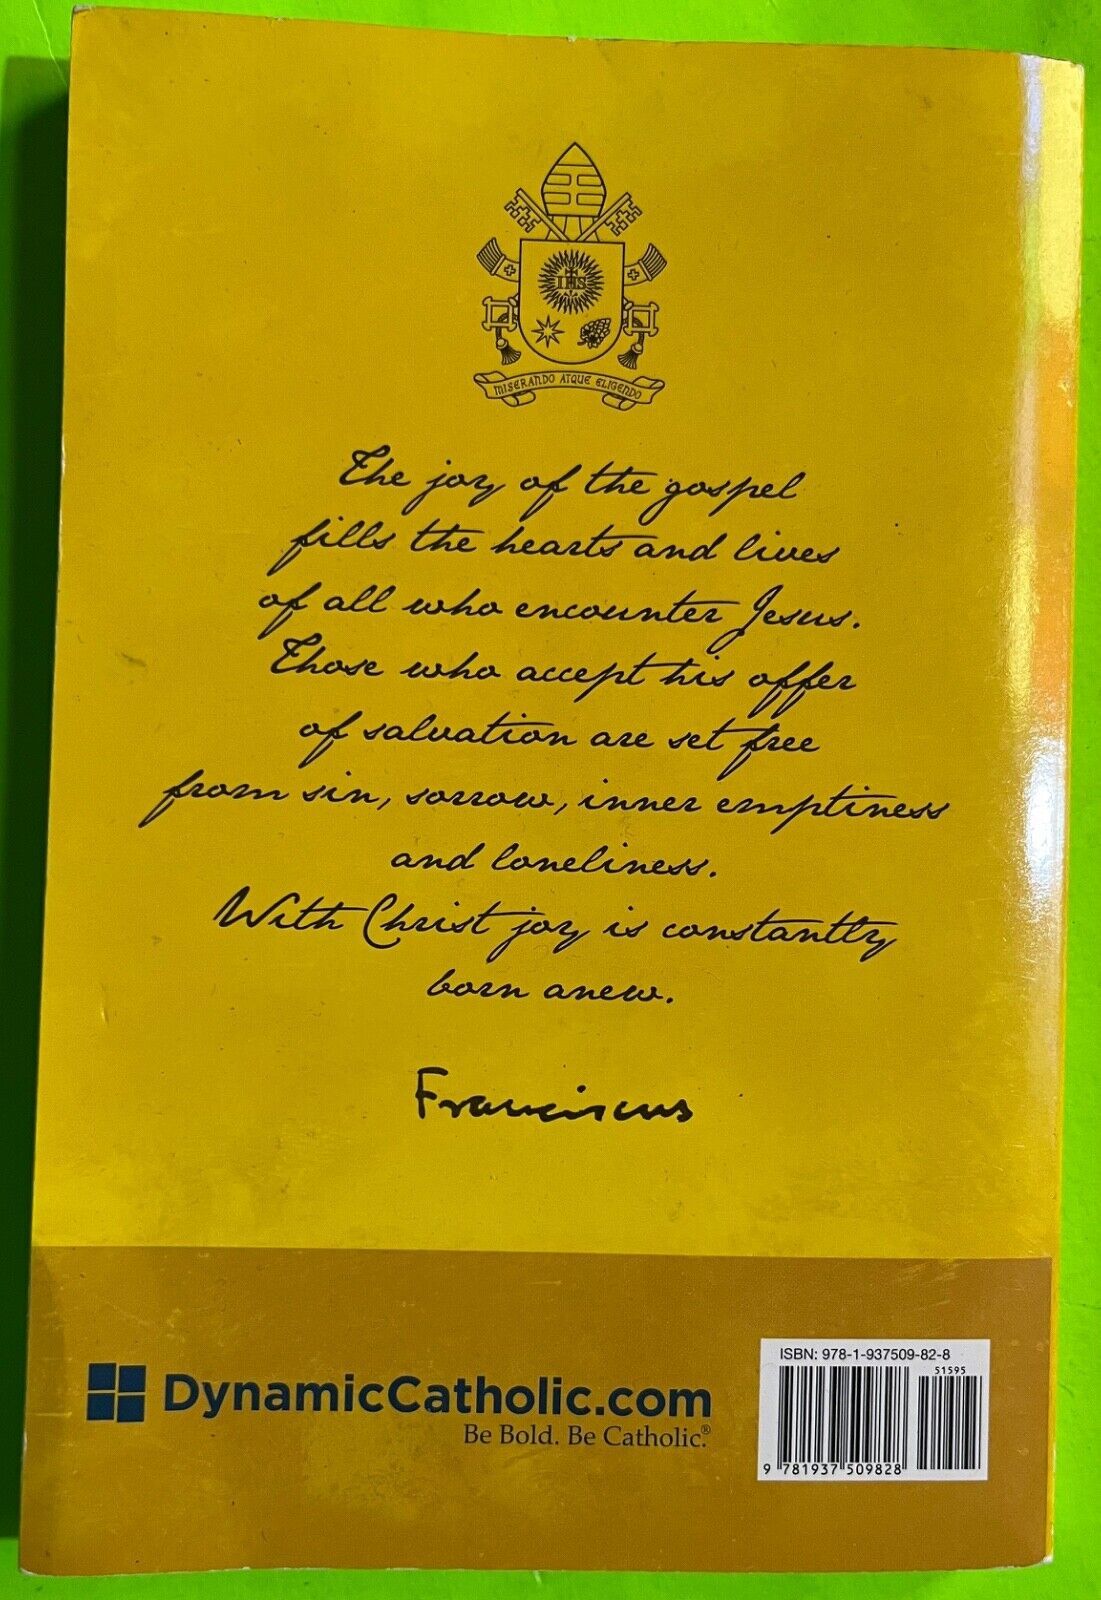 IHS
MISERANDO ATQUE ELIGENDO
The joy of the gospel
fills the hearts and lives
of all who encounter Jesus.
Those who accept his offer
of salvation are set free
from sin, sorrow, inner emptiness
and loneliness.
With Christ joy is constantly
born anew.
Franciscus
DynamicCatholic.com
Be Bold. Be Catholic.®
ISBN: 978-1-937509-82-8
51595
9 781937 509828